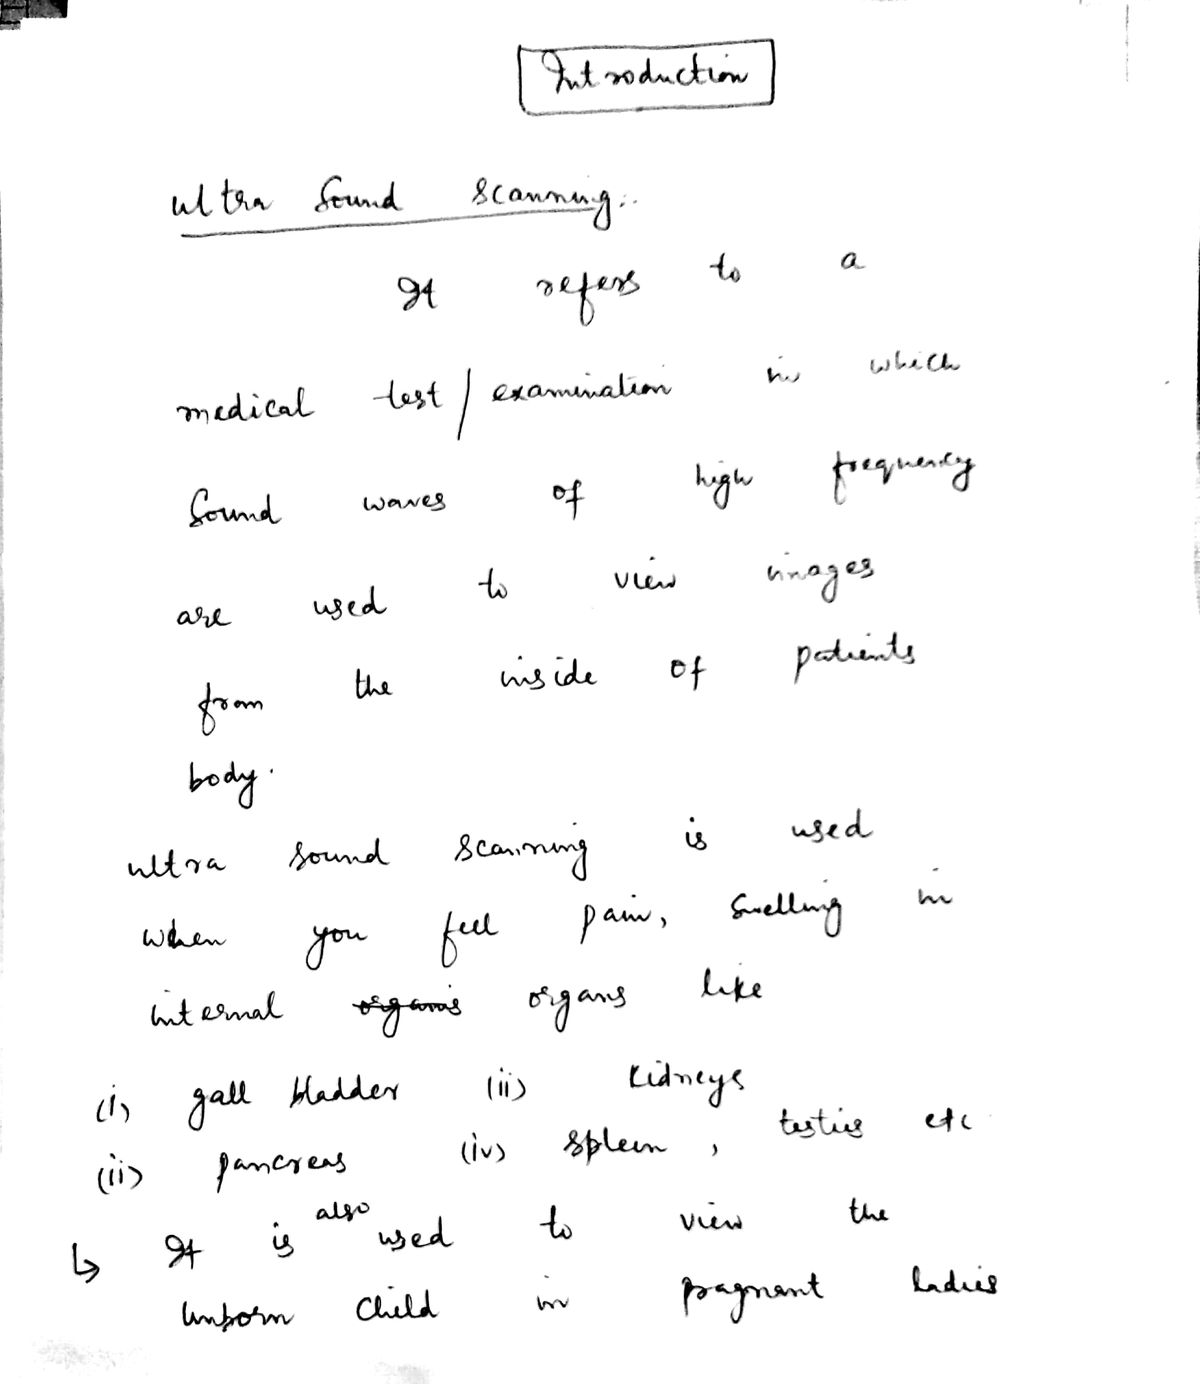 Introduction
ultra sound scanning:.
It refers to a
medical test/examination in which
Sound waves of high frequency
are used to view images
from the inside of patients
body.
ultra sound scanning is used
when you feel pain, Swelling in
internal organs organs like
(i) gall bladder (ii) kidneys
(ii) pancreas (iv) spleen, testies etc
↳ It is also used to view the
Unborn child in pragnant ladies